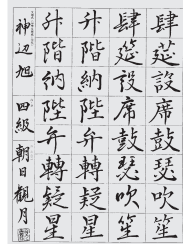 肆筵設席鼓瑟吹笙
肆筵設席鼓瑟吹笙
升階納陛弁轉疑星
升階納陛弁轉疑星
神辺旭 四級 朝日觀月